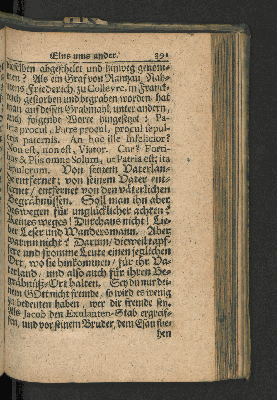 Eins ums ander. 391
dieselben abgeschelet und hinweg genom-
men? Als ein Graf von Rantzau, Nah-
mens Friederich, zu Colleyre, in Franck-
reich gestorben und begraben worden, hat
man auf dessen Grabmahl, unter andern,
auch folgende Worte hingesetzt: Pa-
tria procul, Patre procul, procul sepul-
cris paternis. An hoc ille Infelicior?
Non est, non est, Viator. Cur? Forti-
bus & Piis omne Solum, ut Patria est; ita
sepulcrum. Von seinem Vaterlan-
de entfernet; von seinem Vater ent-
fernet / entfernet von den väterlichen
Begräbnüssen. Soll man ihn aber
deswegen für unglücklicher achten?
Keines weges! Durchaus nicht! Lie-
ber Leser und Wandersmann. Aber
warum nicht? Darum / dieweil tapf-
fere und fromme Leute einen jeglichen
Ort, wo sie hinkommen / für ihr Va-
terland, und also auch für ihren Be-
gräbnüß-Ort halten. Seyd nur dei-
nem GOtt nicht fremde, so wird es wenig
zu bedeuten haben, wer dir fremde sey.
Als Jacob den Exulanten-Stab ergreif-
fen, und vor seinem Bruder, dem Esau flie-
hen